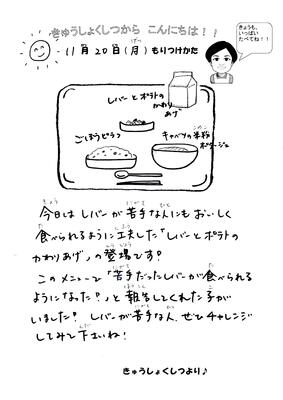 きゅうしょくしつから こんにちは!!
きょうも、
いっぱい
たべてね!!
11月20日(月)もりつけかた
げつ
レバーとポテトの
かわり
あげ
ごぼうピラフ
キャベツの米粉
こめこ
ポタージュ
きょう にがて ひと
今日は レバーが苦手な人にも おいしく
た くふう
食べられるように工夫した「レバーとポテトの
とうじょう
かわりあげ」の登場です?
にがて た
このメニューで「苦手だったレバーが食べられる
ほうこく こ
ようになった?」と報告してくれた子が
にがて ひと
いました? レバーが苦手な人、ぜひチャレンジ
くだ
してみて下さいね!
きゅうしょくしつより♪